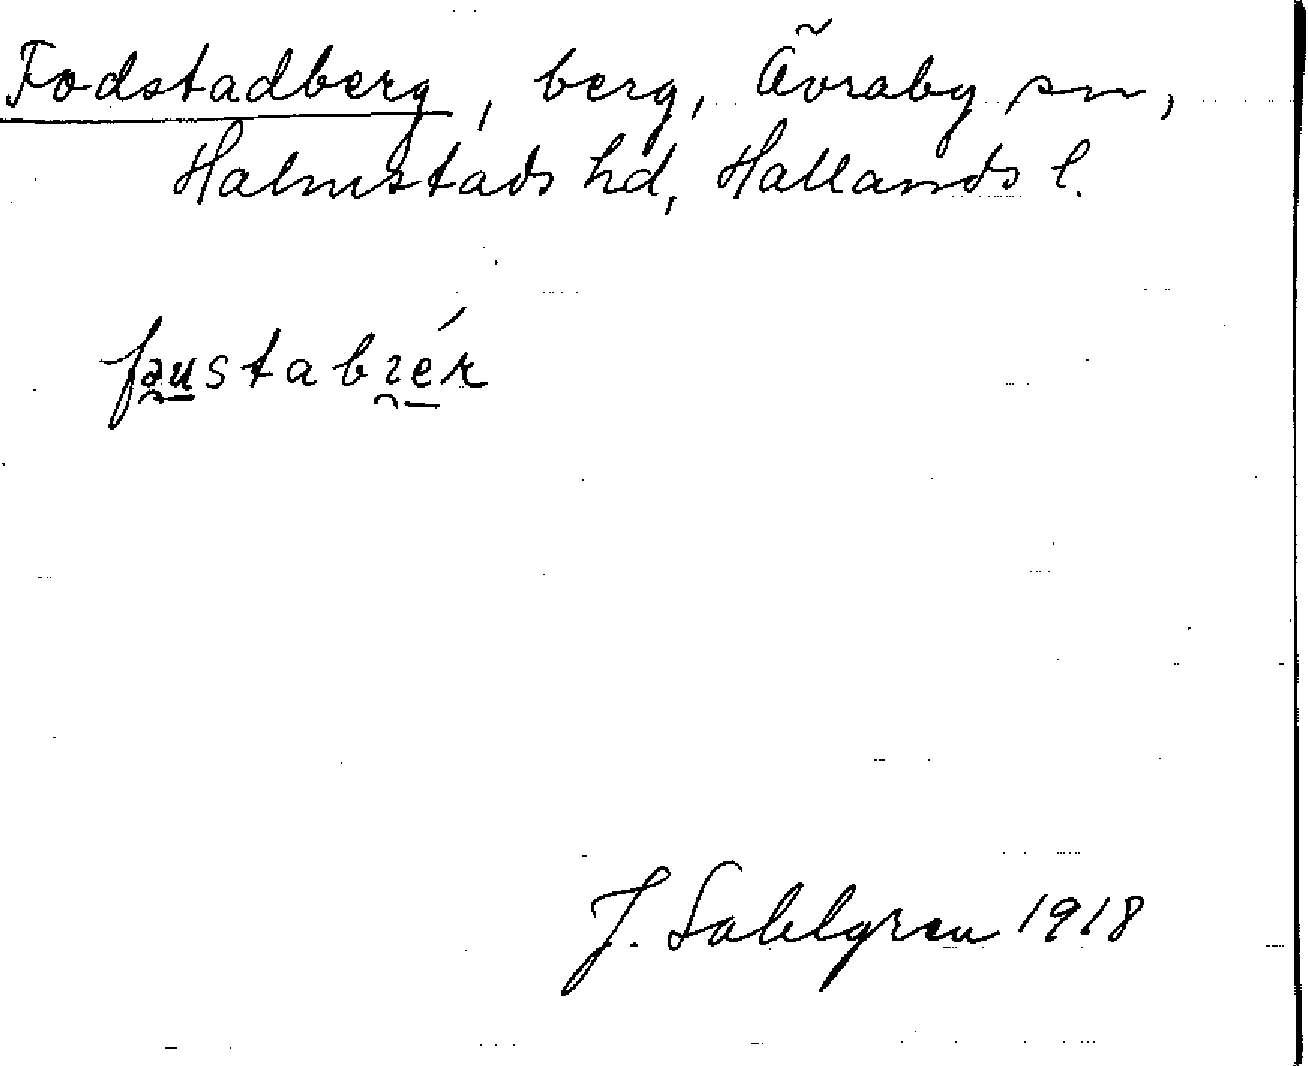 Fodstadberg, berg, Övraby sn,
Halmstads hd, Hallands l.
fəustabrér
J. Sahlgren 1918